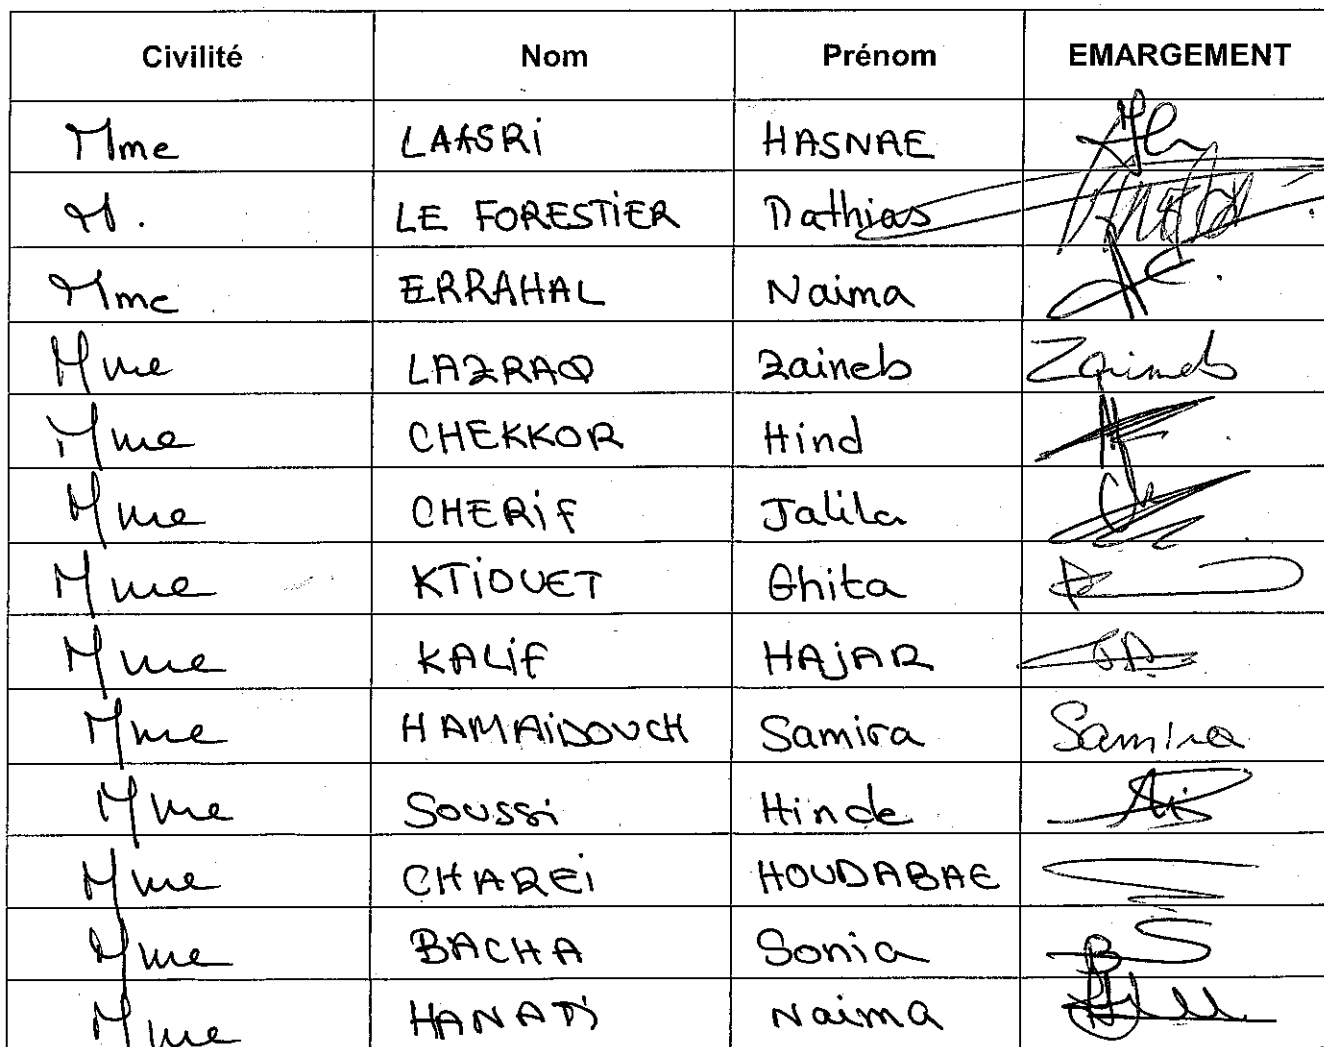 Civilité Nom Prénom EMARGEMENT
Mme LAASRi HASNAE
M. LE FORESTIER Mathias
Mme ERRAHAL Naima
Mme LAZRAQ Zaineb Zaineb
Mme CHEKKOR Hind
Mme CHERiF Jalila
Mme KTiOUET Ghita
Mme KALiF HAjAR
Mme HAMAiDOUCH Samira Samira
Mme Soussi Hinde
Mme CHAREi HOUDABAE
Mme BACHA Sonia BS
Mme HANATi Naima